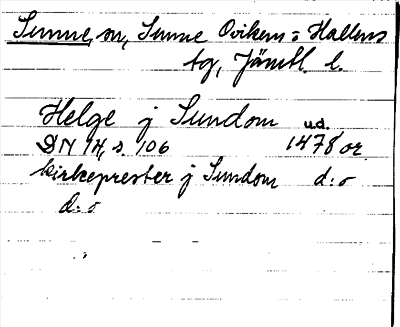 Sunne, sn, Sunne Ovikens o Hallens
tg, Jämtl. l.
Helge j Sundom u.d.
DN 14, s. 106 1478 or.
kirkeprester j Sundom d:o
d:o